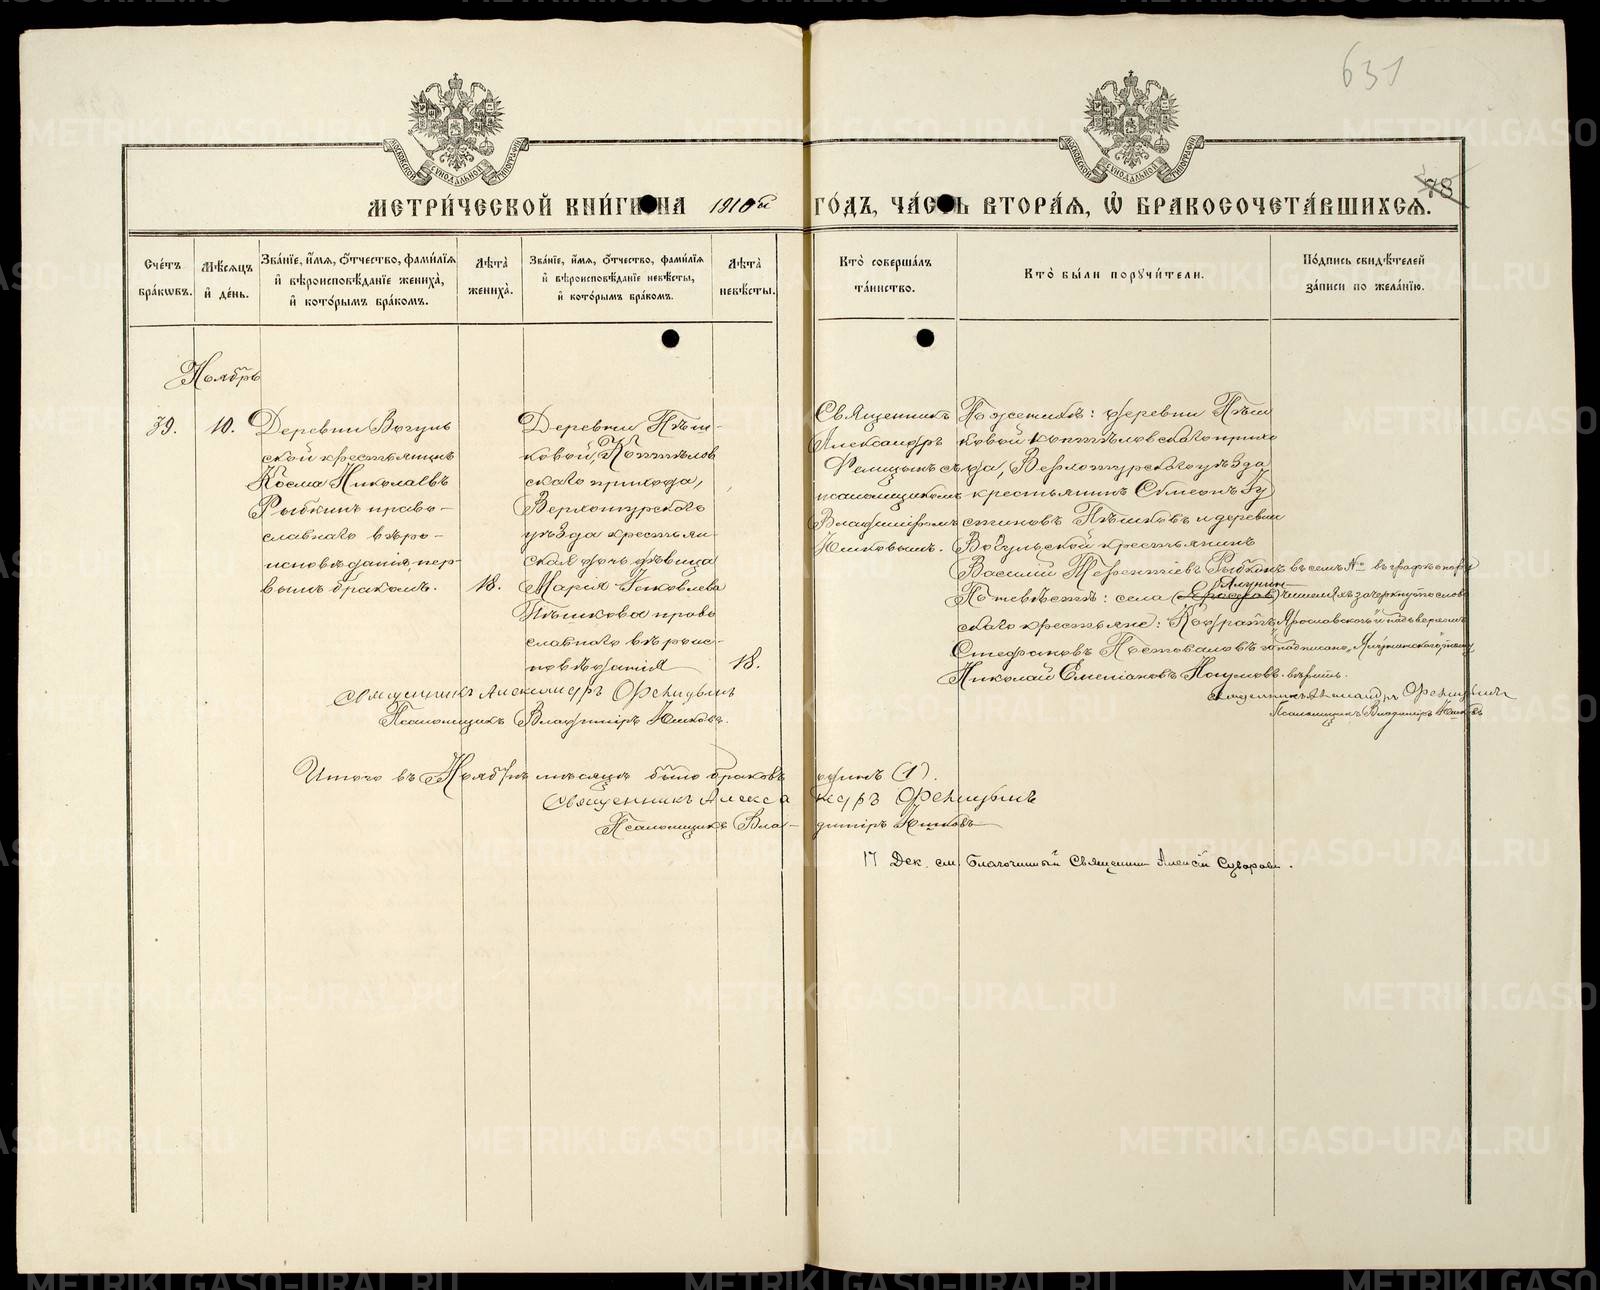 631
МЕТРИ́ЧЕСКОЙ КНИ́ГИ НА 1910й ГО́ДЪ, ЧА́СТЬ ВТОРА́Я, Ѡ БРАКОСОЧЕТА́ВШИХСЯ.
78
Сче́тъ бра́кѡвъ.
Мѣ́сяцъ и де́нь.
Зва́нїе, и́мя, ѻ́тчество, фами́лїя и вѣроисповѣ́данїе жениха̀, и кото́рымъ бра́комъ.
Лѣ́та жениха̀.
Зва́нїе, и́мя, ѻ́тчество, фами́лїя и вѣроисповѣ́данїе невѣ́сты, и кото́рымъ бра́комъ.
Лѣ́та невѣ́сты.
Кто̀ соверша́лъ та́инство.
Кто̀ бы́ли поручи́тели.
По́дпись свидѣ́телей за́писи по жела́нїю.
Ноябрь
39.
10.
Деревни Вогуль
ской крестьянинъ
Косма Николаевъ
Рыбкинъ право-
славнаго вѣро-
исповѣданія, пер-
вымъ бракомъ.
18.
Деревни Пѣш-
ковой, Коптѣлов
скаго прихода,
Верхотурскаго
уѣзда крестьян-
ская дочь дѣвица
Марія Яковлева
Пѣшкова право
славнаго вѣроис-
повѣданія
18.
Священникъ
Александръ
Феницынъ съ
псаломщикомъ
Владиміромъ
Юшковымъ.
По женихѣ: деревни Пѣш
ковой Коптѣловскаго прихо
да, Верхотурскаго уѣзда
крестьянинъ Симеонъ Гу
стиновъ Пѣшковъ и деревни
Вогульской крестьянинъ
Василій Терентіевъ Рыбкинъ
въ семъ № въ графѣ о пору
Алунин
По невѣстѣ: села (Ярослав)
чителяхъ зачеркнуто слово
скаго крестьяне: Кодратъ
„Ярославскаго“ и подъ верхомъ
Стефановъ Постоваловъ и
надписано „Алунинскаго“,
Николай Емеліановъ Наумовъ.
вѣрить.
Священникъ Александръ Феницынъ
Псаломщикъ Владиміръ Юшковъ.
Священникъ Александръ Феницынъ
Псаломщикъ Владиміръ Юшковъ
Итого въ Ноябрѣ мѣсяцѣ было браковъ одинъ (1).
Священникъ Александръ Феницынъ
Псаломщикъ Владиміръ Юшковъ
17 Дек. см. Благочинный Священник Алексій Суворов.
METRIKI.GASO-URAL.RU